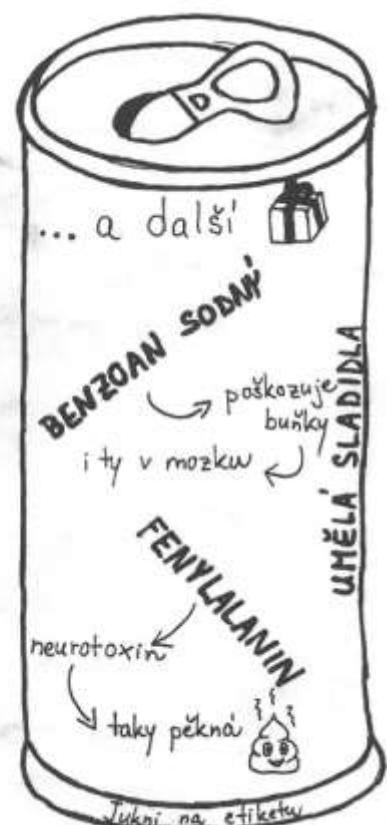 ... a další
BENZOAN SODNÝ
poškozuje
buňky
i ty v mozku
UMĚLÁ SLADIDLA
FENYLALANIN
neurotoxin
taky pěkná
Jukni na etiketu